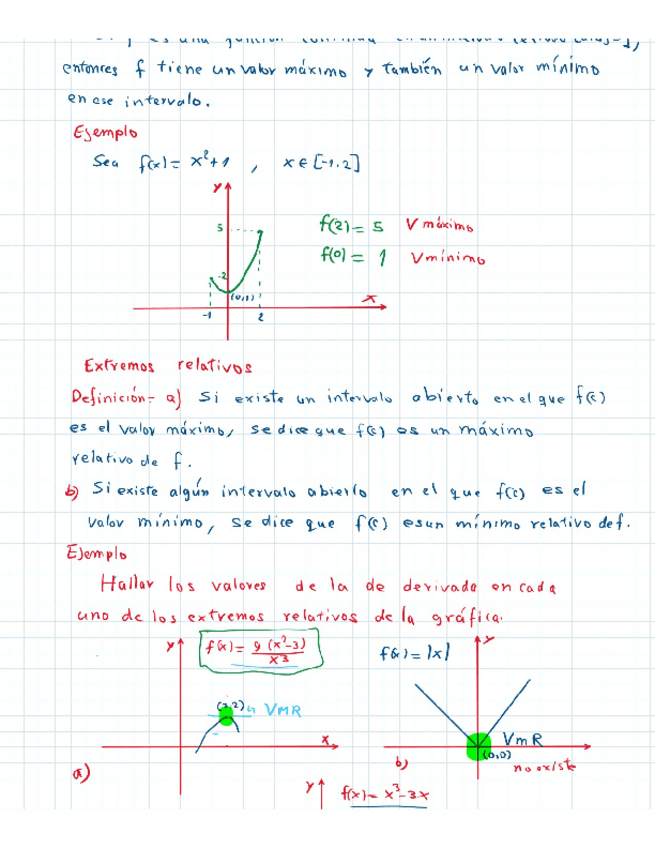 entonces f tiene un valor máximo y también un valor mínimo
en ese intervalo.
Ejemplo
Sea f(x) = x²+1 , x ∈ [-1.2]
y
5
f(2) = 5 V máximo
f(0) = 1 V mínimo
2
(0,1)
x
-1 2
Extremos relativos
Definición- a) Si existe un intervalo abierto en el que f(c)
es el valor máximo, se dice que f(c) es un máximo
relativo de f.
b) Si existe algún intervalo abierto en el que f(c) es el
valor mínimo, se dice que f(c) es un mínimo relativo de f.
Ejemplo
Hallar los valores de la de derivada en cada
uno de los extremos relativos de la gráfica.
y f(x) = 9(x²-3)/x³
(3,2) VMR
x
a)
y
f(x) = |x|
VmR
(0,0)
b) no existe
y f(x) = x³-3x